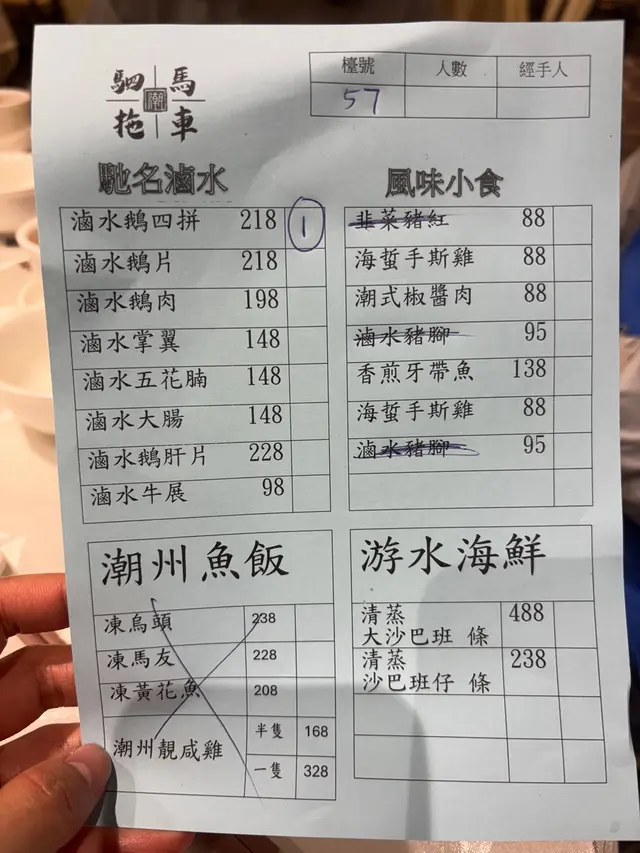 駟馬拖車
潮
檯號 人數 經手人
57
馳名滷水
滷水鵝四拼 218 1
滷水鵝片 218
滷水鵝肉 198
滷水掌翼 148
滷水五花腩 148
滷水大腸 148
滷水鵝肝片 228
滷水牛展 98
風味小食
韭菜豬紅 88
海蜇手斯雞 88
潮式椒醬肉 88
滷水豬腳 95
香煎牙帶魚 138
海蜇手斯雞 88
滷水豬腳 95
潮州魚飯
凍烏頭 238
凍馬友 228
凍黃花魚 208
潮州靚咸雞 半隻 168
一隻 328
游水海鮮
清蒸 488
大沙巴班 條
清蒸 238
沙巴班仔 條